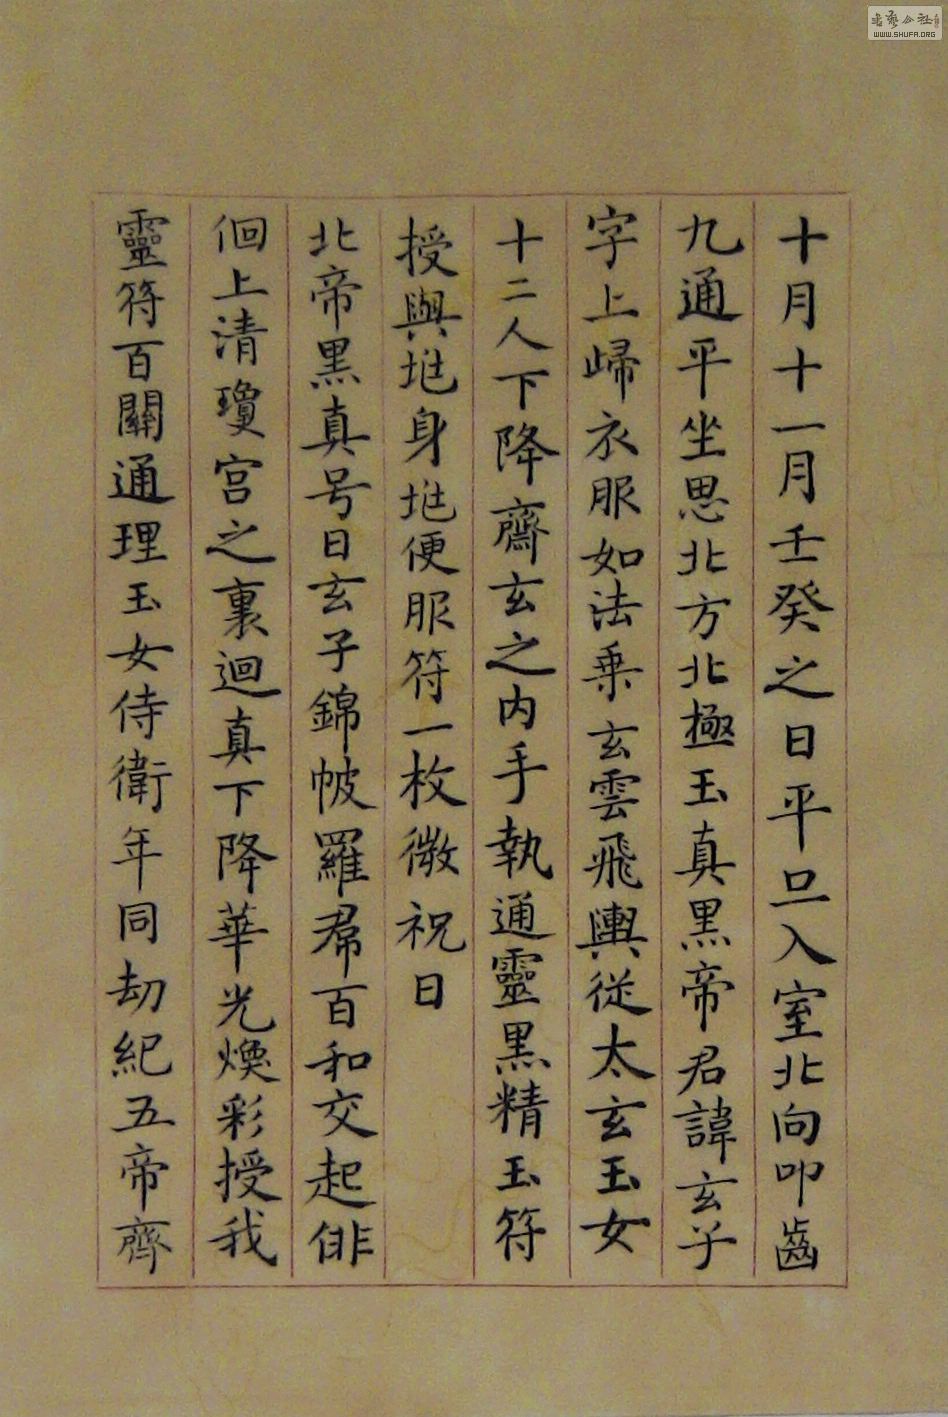 十月十一月壬癸之日平旦入室北向叩齒
九通平坐思北方北極玉真黑帝君諱玄子
字上歸衣服如法乗玄雲飛輿從太玄玉女
十二人下降齋玄之内手執通靈黒精玉符
授與兆身兆便服符一枚微祝曰
北帝黒真号曰玄子錦帔羅帬百和交起俳
佪上清瓊宫之裏迴真下降華光煥彩授我
靈符百關通理玉女侍衛年同劫紀五帝齊
書藝公社
WWW.SHUFA.ORG